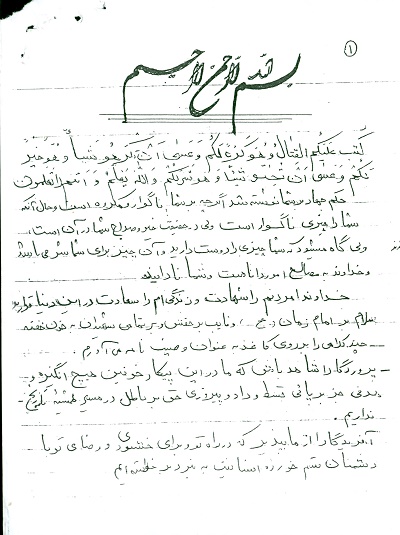 ۱
بسم الله الرحمن الرحیم
کتب علیکم القتال و هو کره لکم و عسی ان تکرهوا شیئاً و هو خیر
لکم و عسی ان تحبوا شیئاً و هو شر لکم والله یعلم و انتم لا تعلمون
حکم جهاد بر شما نوشته شد گرچه بر شما ناگوار و مکروه است و حال آنکه
شما را چیزی ناگوار است ولی در حقیقت خیر و صلاح شما در آن است،
ولی گاه میشود که شما چیزی را دوست دارید و آن چیز برای شما شر می باشد
و خداوند به مصالح امور دانا است و شما نادانید
خداوندا مردنم را شهادت و زندگی ام را سعادت در این دنیا قرار بده
سلام بر امام زمان (عج) و نایب بر حقش و بر تمامی شهیدان به خون خفته
چند کلامی را بر روی کاغذ به عنوان وصیت نامه می آورم.
- پروردگارا شاهد باش که ما در این پیکار خونین هیچ انگیزه و
هدفی جز برپائی قسط و داد و پیروزی حق بر باطل در مسیر همیشه تاریخ
نداریم.
آفریدگارا از ما بپذیر که در راه تو و برای خشنودی و رضای تو با
دشمنان قسم خورده انسانیت به نبرد برخاسته ایم